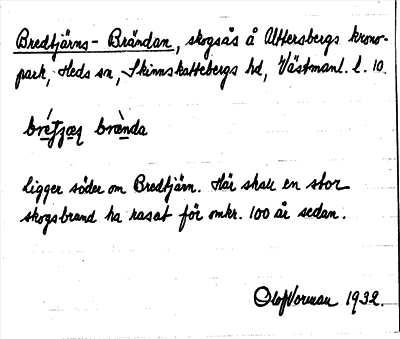 Bredtjärns-Brändan, skogsås å Uttersbergs krono-
park, Heds sn, Skinnskattebergs hd, Västmanl. l. 10.
Ligger söder om Bredtjärn. Här skall en stor
skogsbrand ha rasat för omkr. 100 år sedan.
Olof Norman 1932.